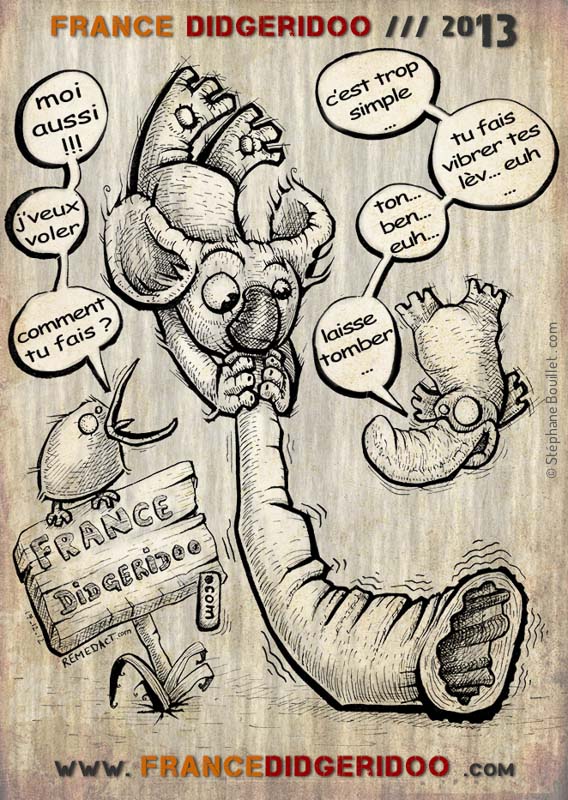 FRANCE DIDGERIDOO /// 2013
moi
aussi
!!!
j'veux
voler
comment
tu fais ?
c'est trop
simple
...
tu fais
vibrer tes
lèv... euh
...
ton...
ben...
euh...
laisse
tomber
...
© Stéphane Bouillet. com
FRANCE
DIDGERIDOO
.com
REMEDACT.com
www. FRANCEDIDGERIDOO .com